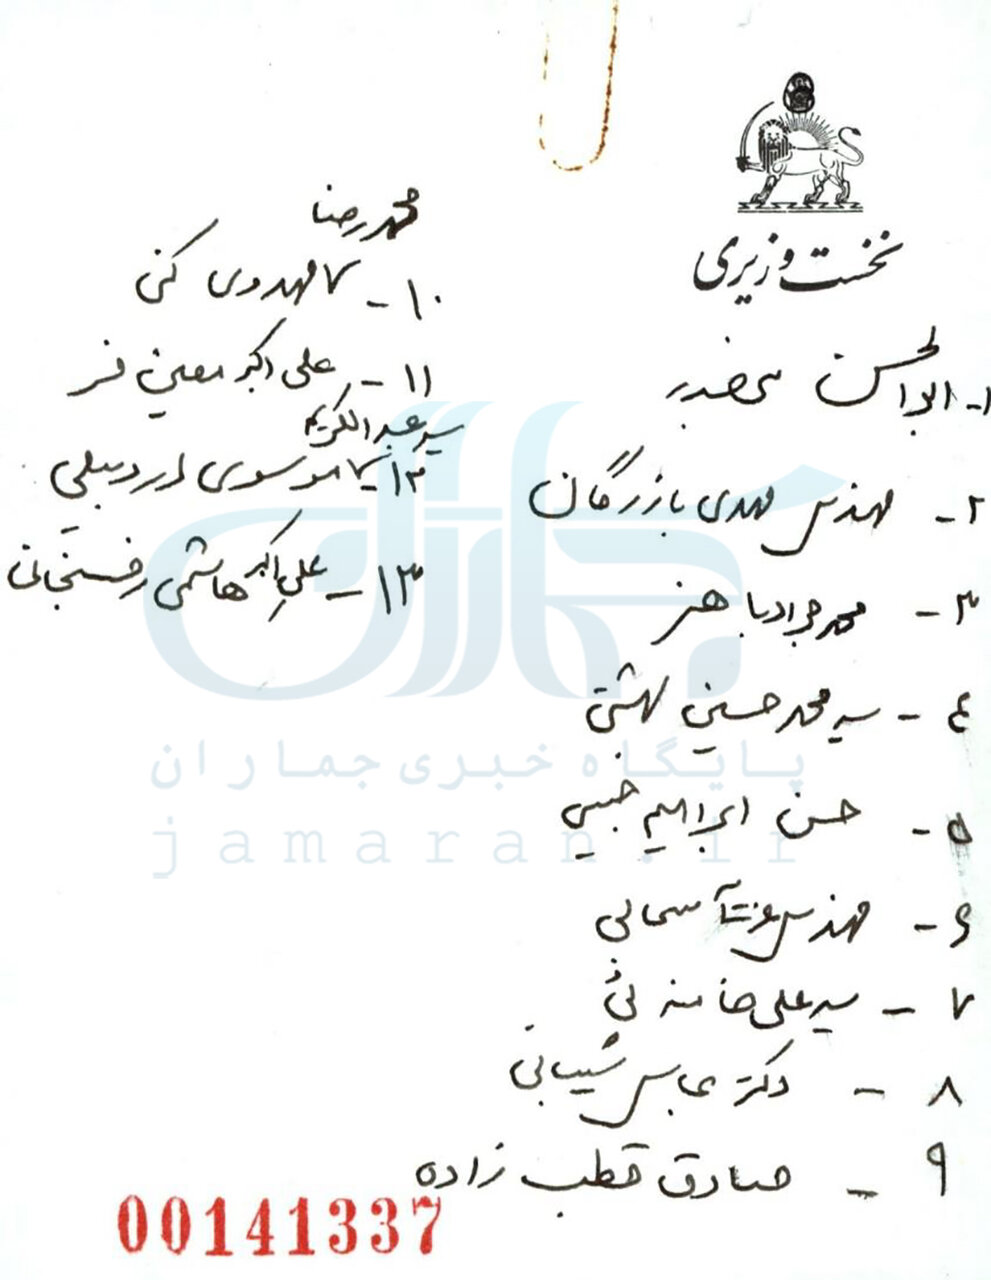 نخست وزیری
۱- ابوالحسن بنی صدر
۲- مهندس مهدی بازرگان
۳- محمد جواد باهنر
۴- سید محمد حسینی بهشتی
۵- حسن ابراهیم حبیبی
۶- مهندس عزت‌آ سحابی
۷- سید علی خامنه ئی
۸- دکتر عباس شیبانی
۹- صادق قطب زاده
محمد رضا
۱۰- مهدوی کنی
۱۱- علی اکبر معین فر
سید عبدالکریم
۱۲- موسوی اردبیلی
۱۳- علی اکبر هاشمی رفسنجانی
جماران
پایگاه خبری جماران
jamaran.ir
00141337